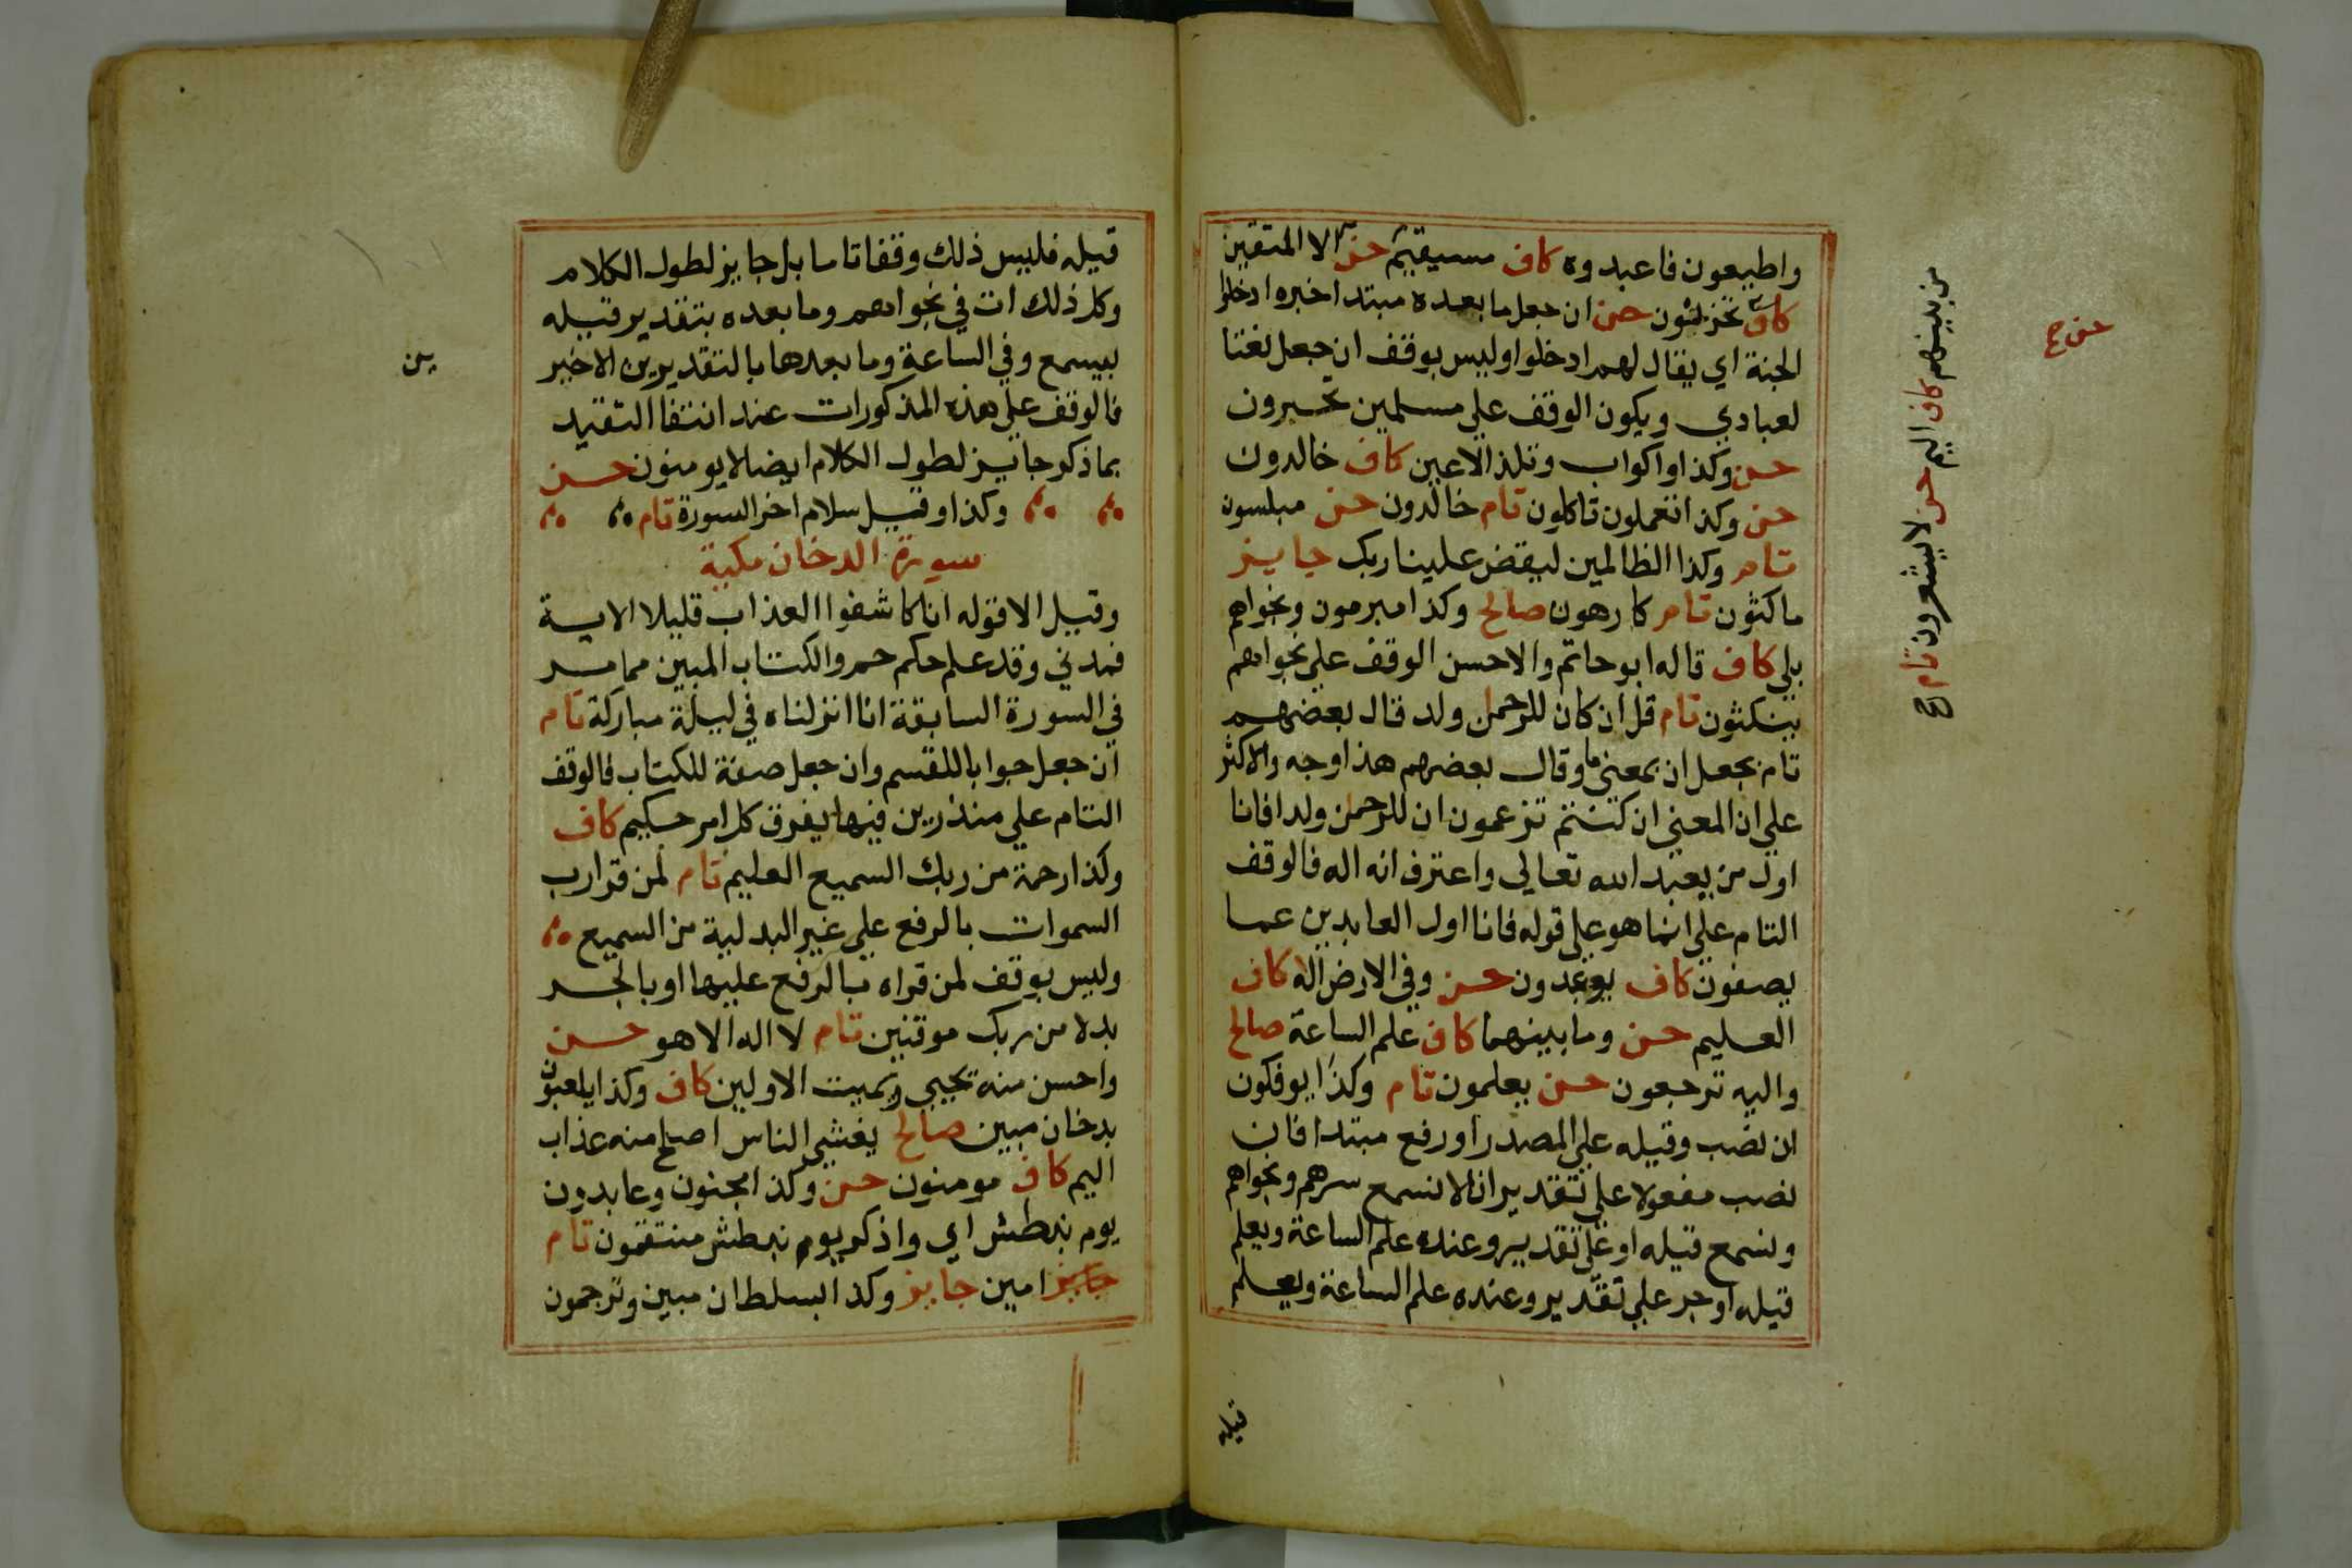 واطيعون فاعبدوه كاف مستقيم حسن الا المتقين
كاف تحزنون حسن ان جعل ما بعده مبتدا خبره ادخلوا
الجنة اي يقال لهم ادخلوا وليس بوقف ان جعل نعتا
لعبادي ويكون الوقف علي مسلمين تحبرون
حسن وكذا واكواب وتلذ الاعين كاف خالدون
حسن وكذا تعملون تاكلون تام خالدون حسن مبلسون
تام وكذا الظالمين ليقض علينا ربك جايز
ماكثون تام كارهون صالح وكذا مبرمون ونجواهم
بلي كاف قاله ابو حاتم والاحسن الوقف علي نجواهم
يكتبون تام قل ان كان للرحمن ولد قال بعضهم
تام بجعل ان بمعني ما وقال بعضهم هذا وجه والاكثر
علي ان المعني ان كنتم تزعمون ان للرحمن ولدا فانا
اول من يعبد الله تعالي واعترف انه اله فالوقف
التام علي انما هو علي قوله فانا اول العابدين عما
يصفون كاف يوعدون حسن وفي الارض اله كاف
العليم حسن وما بينهما كاف علم الساعة صالح
واليه ترجعون حسن يعلمون تام وكذا يوفكون
ان نصب وقيله علي المصدر او رفع مبتدا فان
نصب مفعولا علي تقدير انا لا نسمع سرهم ونجواهم
ونسمع قيله او علي تقدير وعنده علم الساعة ويعلم
قيله او جر علي تقدير وعنده علم الساعة ويعلم
قيله
من بينهم كاف اليم حسن لا يشعرون تام صح
حسن صح
قيله فليس ذلك وقفا تاما بل جايز لطول الكلام
وكل ذلك ات في نجواهم وما بعده بتقدير قيله
بيسمع وفي الساعة وما بعدها بالتقديرين الاخير
ين
فالوقف علي هذه المذكورات عند انتفا التقيد
بما ذكر جايز لطول الكلام ايضا لا يومنون حسن
وكذا وقيل سلام اخر السورة تام
سورة الدخان مكية
وقيل الا قوله انا كاشفوا العذاب قليلا الاية
فمدني وقد علم حكم حم والكتاب المبين مما مر
في السورة السابقة انا انزلناه في ليلة مباركة تام
ان جعل جوابا للقسم وان جعل صفة للكتاب فالوقف
التام علي منذرين فيها يفرق كل امر حكيم كاف
وكذا رحمة من ربك السميع العليم تام لمن قرا رب
السموات بالرفع علي غير البدلية من السميع
وليس بوقف لمن قراه بالرفع عليها او بالجر
بدلا من ربك موقنين تام لا اله الا هو حسن
واحسن منه يحيي ويميت الاولين كاف وكذا يلعبون
بدخان مبين صالح يغشي الناس اصلح منه عذاب
اليم كاف مومنون حسن وكذا مجنون وعايدون
يوم نبطش اي واذكر يوم نبطش منتقمون تام
جايز امين جايز وكذا بسلطان مبين وترجمون